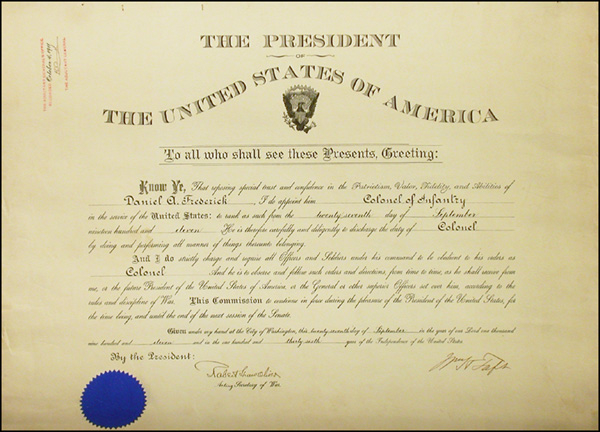 THE PRESIDENT
OF
THE UNITED STATES OF AMERICA
To all who shall see these Presents, Greeting:
Know Ye, That reposing special trust and confidence in the Patriotism, Valor, Fidelity, and Abilities of
Daniel A. Frederick, I do appoint him Colonel of Infantry
in the service of the United States: to rank as such from the twenty-seventh day of September
nineteen hundred and eleven He is therefore carefully and diligently to discharge the duty of Colonel
by doing and performing all manner of things thereunto belonging.
And I do strictly charge and require all Officers and Soldiers under his command to be obedient to his orders as
Colonel And he is to observe and follow such orders and directions, from time to time, as he shall receive from
me, or the future President of the United States of America, or the General or other superior Officers set over him, according to the
rules and discipline of War. This Commission to continue in force during the pleasure of the President of the United States, for
the time being, and until the end of the next session of the Senate.
Given under my hand at the City of Washington, this twenty-seventh day of September in the year of our Lord one thousand
nine hundred and eleven and in the one hundred and thirty-sixth year of the Independence of the United States.
By the President:
Wm H Taft
Robert Shaw Oliver
Acting Secretary of War.
October 6, 1911